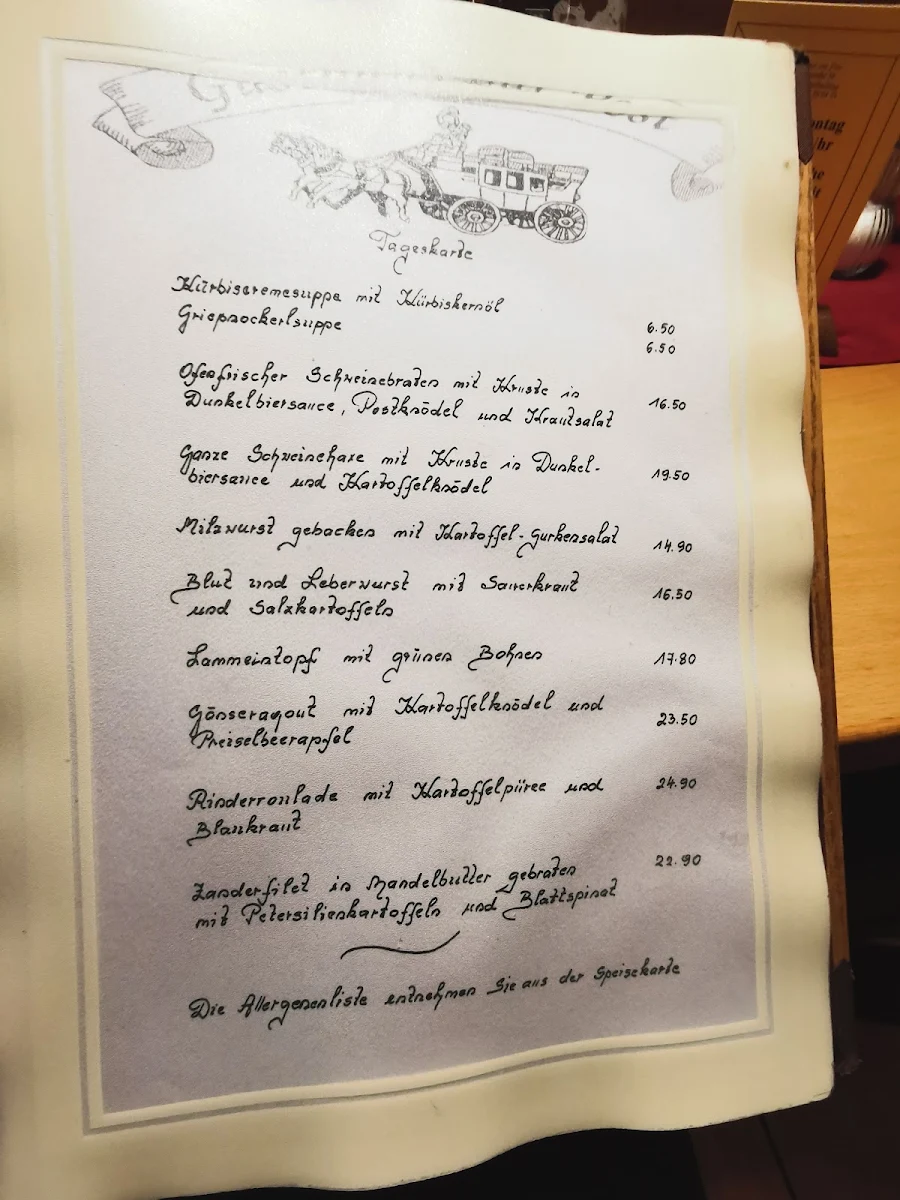 Tageskarte
Kürbiscremesuppe mit Kürbiskernöl
6.50
Grießnockerlsuppe
6.50
Ofenfrischer Schweinebraten mit Kruste in
Dunkelbiersauce, Postknödel und Krautsalat
16.50
Ganze Schweinehaxe mit Kruste in Dunkel-
biersauce und Kartoffelknödel
19.50
Milzwurst gebacken mit Kartoffel-Gurkensalat
14.90
Blut und Leberwurst mit Sauerkraut
und Salzkartoffeln
16.50
Lammeintopf mit grünen Bohnen
17.80
Gänseragout mit Kartoffelknödel und
Preiselbeerapfel
23.50
Rinderroulade mit Kartoffelpüree und
Blaukraut
24.90
Zanderfilet in Mandelbutter gebraten
mit Petersilienkartoffeln und Blattspinat
22.90
Die Allergenenliste entnehmen Sie aus der Speisekarte